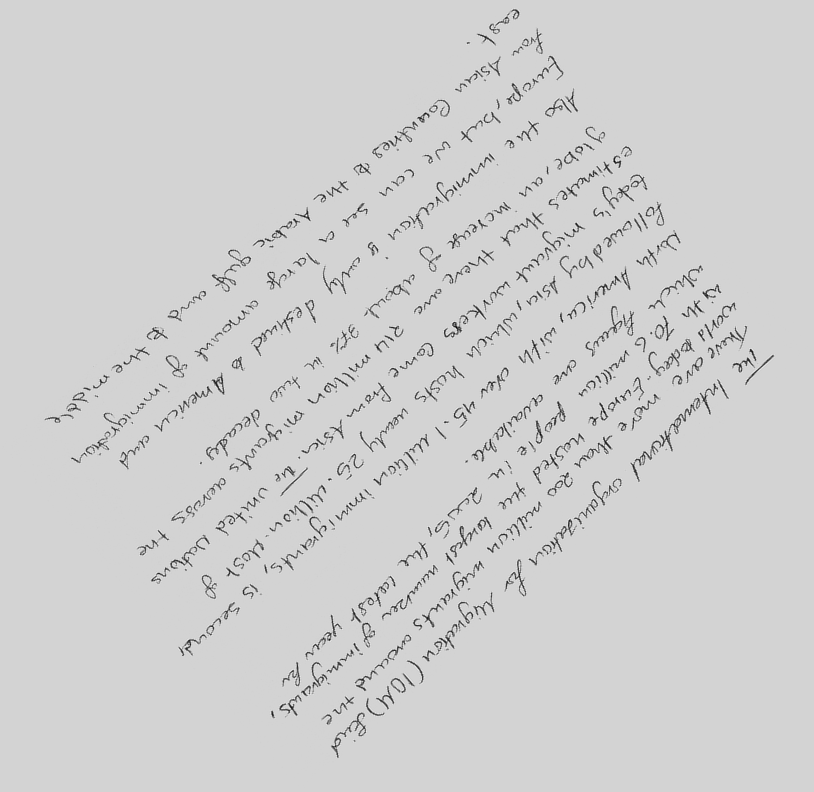 The International organization for Migration (IOM) find
There are more than 200 million migrants around the
world today. Europe hosted the largest number of immigrants,
with 70.6 million people in 2005, the latest year for
which figures are available.
North America, with over 45.1 million immigrants, is second,
followed by Asia, which hosts nearly 25. Million. Most of
today's migrant workers come from Asia. The United Nations
estimates that there are 214 million migrants across the
globe, an increase of about 37% in two decades.
Also the immigration is only destined to America and
Europe, but we can see a large amount of immigration
from Asian Countries to the Arabic gulf and to the middle
east.